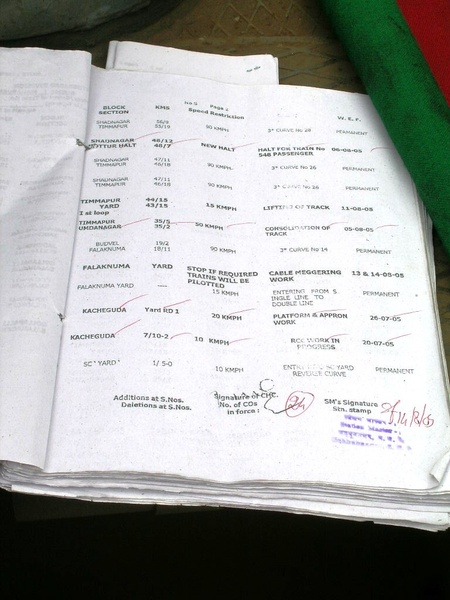 No G Page 2
BLOCK SECTION KMS Speed Restriction W. E. F.
SHADNAGAR 56/9
TIMMAPUR 55/19 90 KMPH 3° CURVE No 28 PERMANENT
SHADNAGAR 46/12 NEW HALT HALT FOR TRAIN No 06-08-05
KOTTUR HALT 46/7 548 PASSENGER
SHADNAGAR 47/11 90 KMPH 3° CURVE No 26 PERMANENT
TIMMAPUR 46/18
SHADNAGAR 47/11 90 KMPH 3° CURVE No 26 PERMANENT
TIMMAPUR 46/18
TIMMAPUR 44/15 15 KMPH LIFTING OF TRACK 11-08-05
YARD 43/15
I st loop
TIMMAPUR 35/5 50 KMPH CONSOLIDATION OF 05-08-05
UMDANAGAR 35/2 TRACK
BUDVEL 19/2 90 KMPH 3° CURVE No 14 PERMANENT
FALAKNUMA 18/11
FALAKNUMA YARD STOP IF REQUIRED CABLE MEGGERING 13 & 14-08-05
TRAINS WILL BE WORK
PILOTTED
FALAKNUMA YARD ---- 15 KMPH ENTERING FROM S PERMANENT
INGLE LINE TO
DOUBLE LINE
KACHEGUDA Yard RD 1 20 KMPH PLATFORM & APPRON 26-07-05
WORK
KACHEGUDA 7/10-2 10 KMPH RCC WORK IN 20-07-05
PROGRESS
SC 'YARD' 1/ 5-0 10 KMPH YARD PERMANENT
REVERSE CURVE
Additions at S.Nos. Signature of CHC. SM's Signature
Deletions at S.Nos. No. of COs Stn. stamp
in force : 24 14/8/05